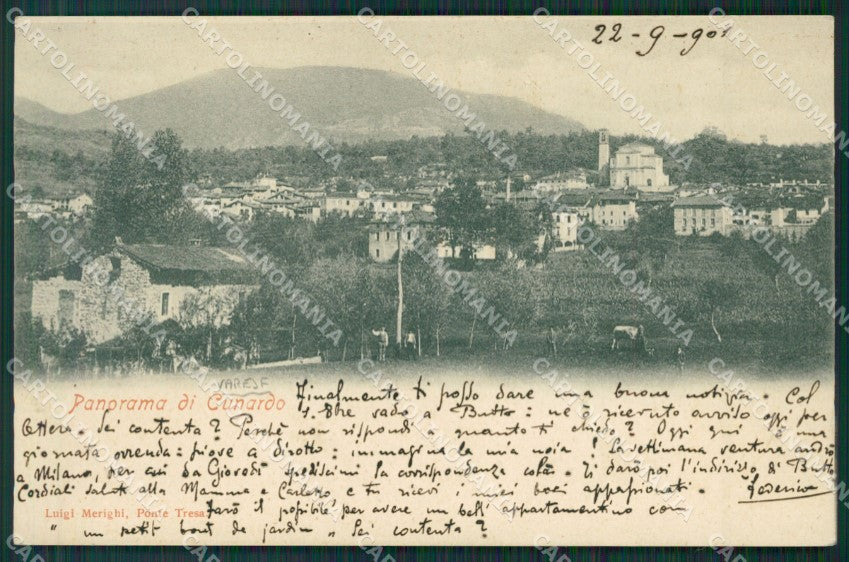 22-9-901
VARESE
Panorama di Cunardo
Finalmente ti posso dare una buona notizia. Col
1. 8bre vado a Butto: ne ò ricevuto avviso oggi per
lettera. Sei contenta? Perchè non rispondi a quanto ti chiedo? Oggi qui è una
giornata orrenda: piove a dirotto: immagina la mia noia! La settimana ventura andrò
a Milano, per cui da Giovedì spediscimi la corrispondenza colà. Ti darò poi l'indirizzo di Butto
Cordiali saluti alla Mamma e Carlotta e tu ricevi i miei baci appassionati. Federico
Luigi Merighi, Ponte Tresa
Farò il possibile per avere un bell'appartamentino con
" un petit bout de jardin " Sei contenta?
CARTOLINOMANIA